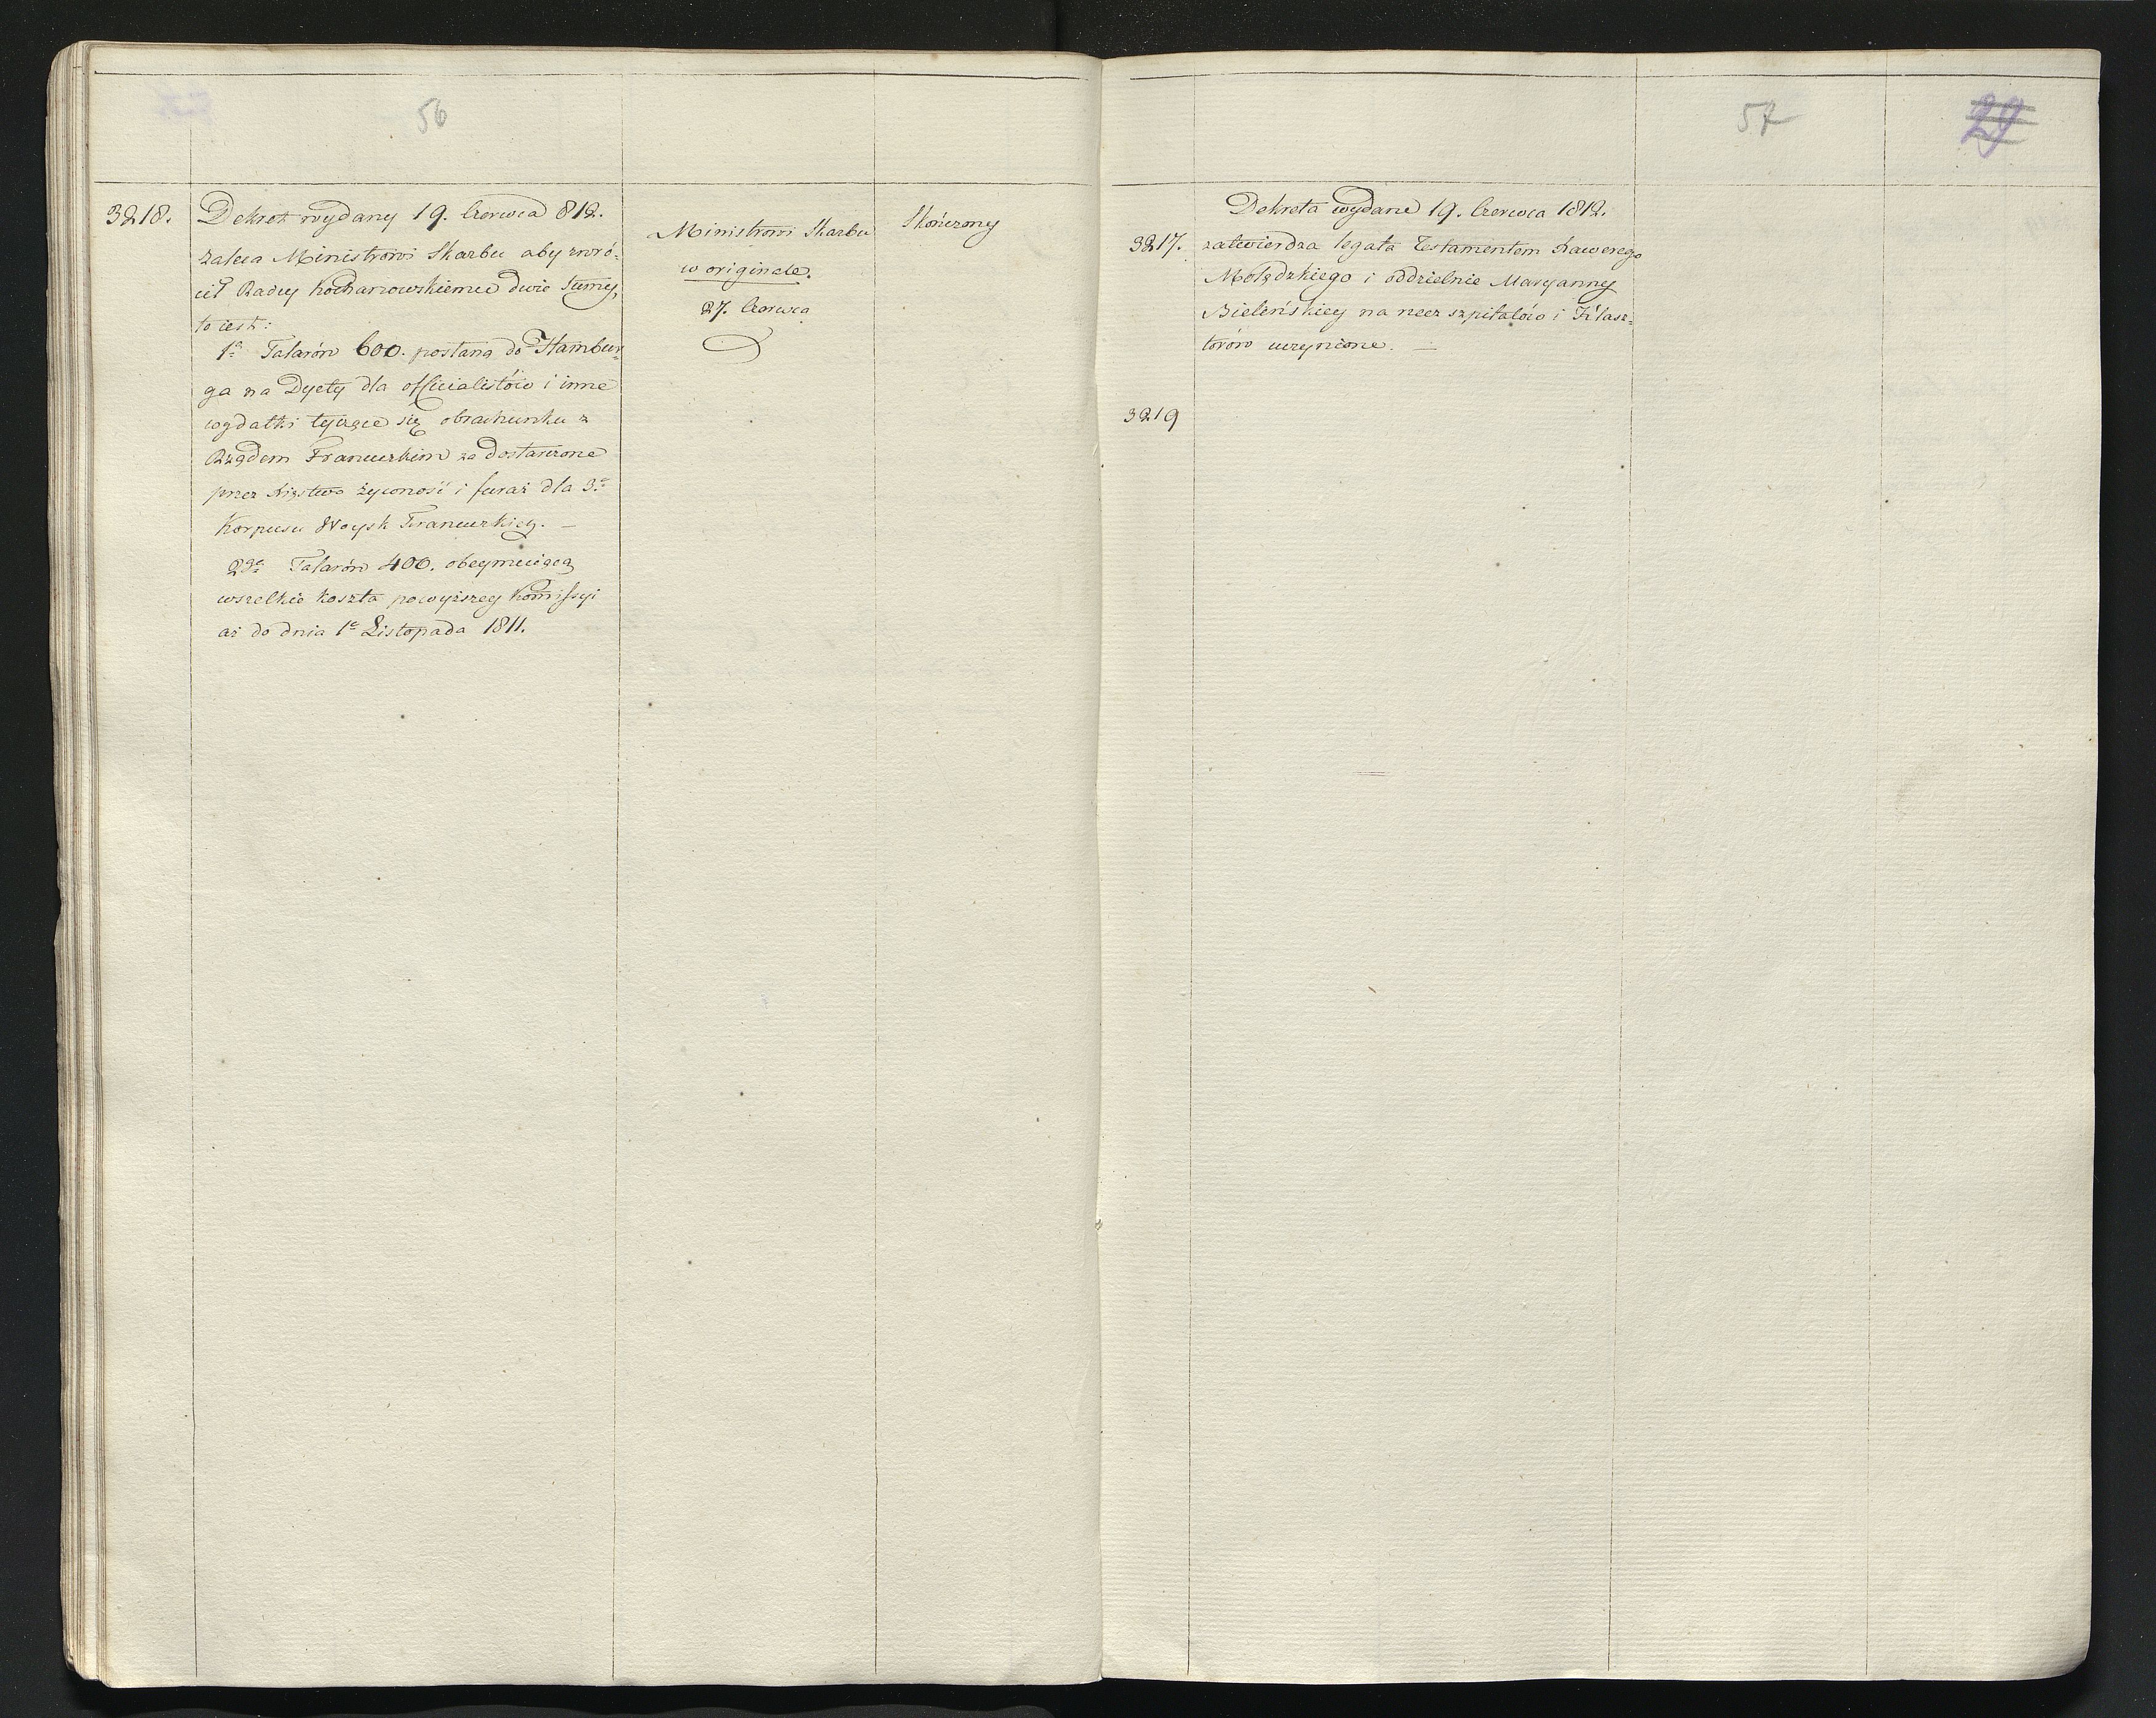 56
3218.
Dekret wydany 19. Czerwca 812.
zaleca Ministrowi Skarbu aby zwró-
cił Radcy Kochanowskiemu dwie Summy,
to iest:
1ą Talarów 600. posłaną do Hambur-
ga na Dyety dla officialistów i inne
wydatki tyczące się obrachunku z
Rządem Francuzkim za dostarczone
przez Xięstwo żywność i furaż dla 3.o
Korpusu Woysk Francuzkiey. —
2gą Talarów 400. obeymuiącą
wszelkie koszta powyższey Kommissyi
aż do dnia 1o Listopada 1811.
Ministrowi Skarbu
w originale.
27. Czerwca
Skończony
57
29
Dekreta wydane 19. Czerwca 1812.
3217. zatwierdza legata Testamentem Xawerego
i oddzielnie Maryanny
Bielińskiey na rzecz szpitalów i Klasz-
torów uczynione. —
3219